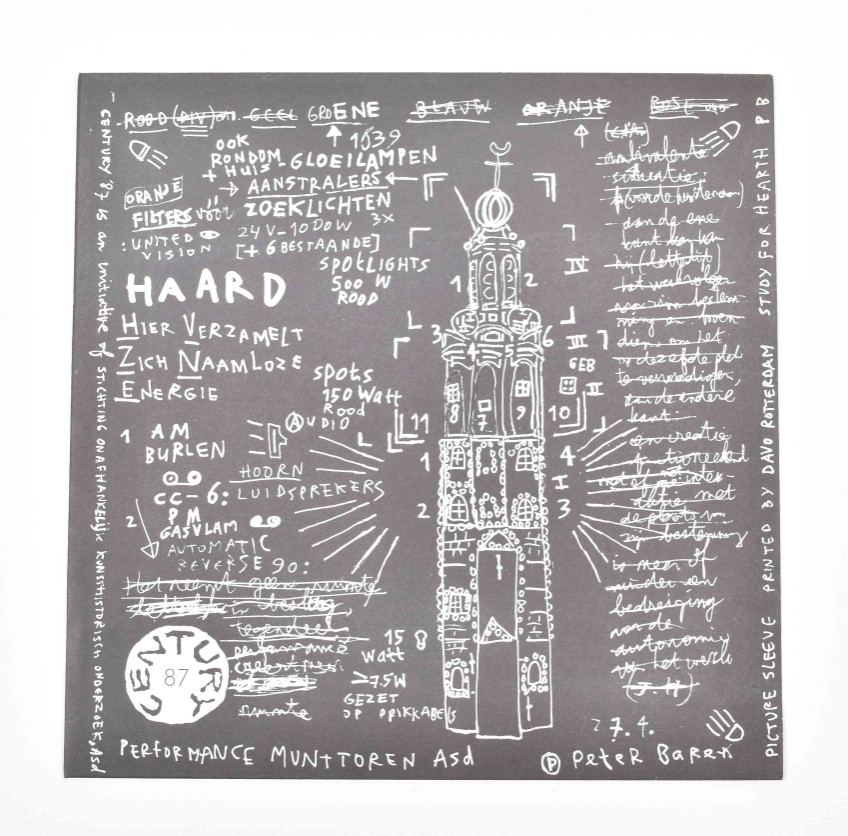 ROOD (DIV) GEEL GROENE BLAUW ORANJE ROSE
1639
OOK
RONDOM
+ HUIS - GLOEILAMPEN
→ AANSTRALERS ←
ORANJE
FILTERS VOOR ZOEKLICHTEN
3X
: UNITED
VISION
24V-100W
[+ 6 BESTAANDE]
SPOTLIGHTS
500 W
ROOD
HAARD
HIER VERZAMELT
ZICH NAAMLOZE
ENERGIE
spots
150 Watt
Rood
AUDIO
1 AM
BURLEN
HOORN
CC-6: LUIDSPREKERS
2 PM
GASVLAM
AUTOMATIC
REVERSE 90:
Het neemt geen ruimte
in beslag
tegendeel
ruimte
CENTURY
87
15
Watt
≥75W
GEZET
OP PRIKKABELS
1 2
IV
3 4 5 6
III
GEB
II
8 7 9 10
11
1 4
I
2 3
ambivalente
situatie:
aan de ene
kant
dien om het
te verwezenlijken,
aan de andere
kant:
een creatie
met
de plaats van
zijn bestemming
is meer of
minder een
bedreiging
van de
autonomie
het werk
27.4.
PERFORMANCE MUNTTOREN Asd
Ⓟ Peter Baren
CENTURY '87 is an initiative of STICHTING ONAFHANKELIJK KUNSTHISTORISCH ONDERZOEK, Asd
PICTURE SLEEVE PRINTED BY DAVO ROTTERDAM STUDY FOR HEARTH P B